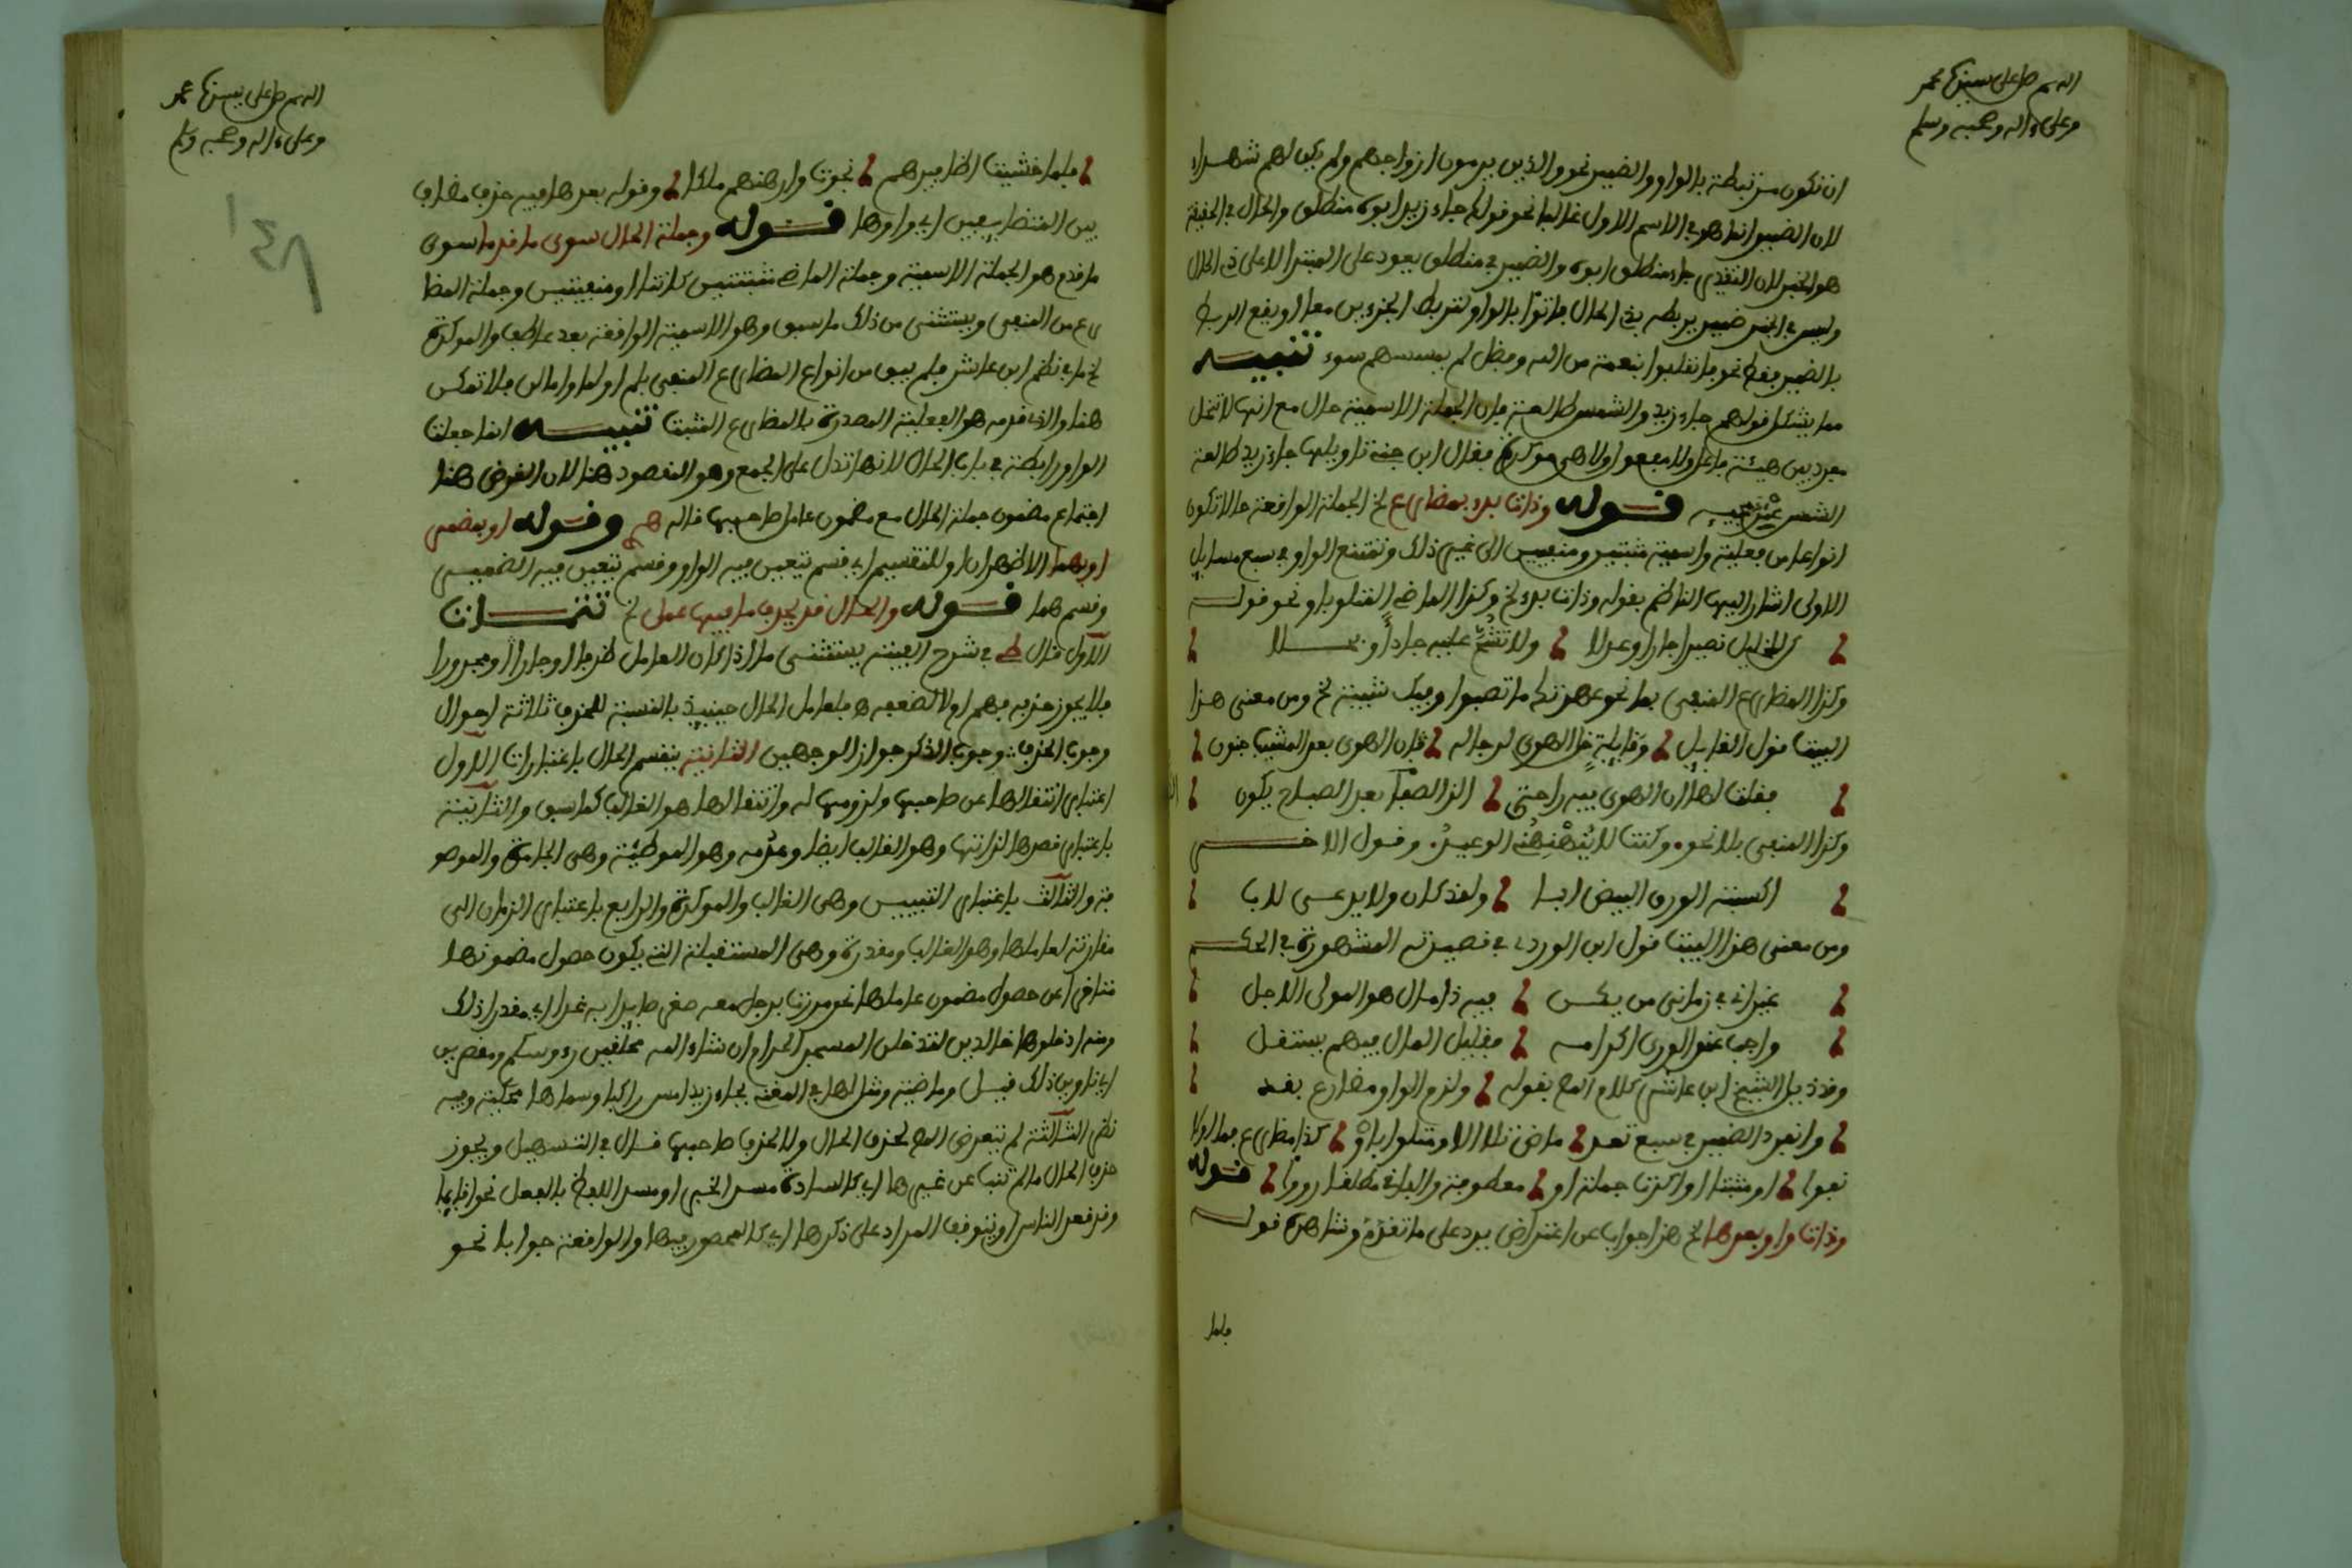 اللهم صل على سيدنا محمد
وعلى ءاله وصحبه وسلم
ان تكون مرتبطة بالواو والضمير نحو والذين يرمون ازواجهم ولم يكن لهم شهداء
لان الضمير انما هو في الاسم الاول غالبا نحو قولك جاء زيد ابوه منطلق والحال في الحقيقة
هو الخبر لان التقدير جاء منطلق ابوه والضمير في منطلق يعود على المبتدا لا على ذي الحال
وليس في الخبر ضمير يربطه بذي الحال فاتوا بالواو لتربط الجزءين معا او يقع الربط
بالضمير فقط نحو فانقلبوا بنعمة من الله وفضل لم يمسسهم سوء تنبيه
مما يشكل قولهم جاء زيد والشمس طالعة فان الجملة الاسمية حال مع انها لا تنحل
مفرد يبين هيئة فاعل ولا مفعول ولا هي موكدة فقال ابن جني تاويلها جاء زيد طالعة
الشمس عند مجيئه قوله وذات بدء بمضارع الخ الجملة الواقعة حالا تكون
انواعا من فعلية واسمية مثبتين ومنفيين الى غير ذلك وتمتنع الواو في سبع مسايل
الاولى اشار اليها الناظم بقوله وذات بدء الخ وكذا الماضي المتلو باو نحو قوله
كن للخليل نصيرا جارا وعدلا ولا تشح عليه جاد او بخلا
وكذا المضارع المنفي بما نحو عهدتك ما تصبوا وفيك شبيبة الخ ومن معنى هذا
البيت قول القايل وقايلة خل الهوى لرجاله فان الهوى بعد المشيب جنون
فقلت لها ان الهوى فيه راحتي الذ الصبا بعد الصباح يكون
وكذا المنفي بلا نحو وكنت لا ينهنهني الوعيد وقول الاخر
اكسبته الورق البيض ابا ولقد كان ولا يدعى لاب
ومن معنى هذا البيت قول ابن الوردي في قصيدته المشهورة في الحكم
غير اني في زماني من يكن فيه ذا مال هو المولى الاجل
واجب عند الورى اكرامه وقليل المال فيهم يستقل
وقد ذيل الشيخ ابن عاشر كلام المص بقوله ولزم الواو مضارع بقد
وانفرد الضمير في سبع تعد ماض تلا الا ومتلوا باو كذا مضارع بما او لا
نفوا او مثبتا او اكدت جملة او معطوفة والباق مطلقا رووا قوله
وذات واو بعدها الخ هذا جواب عن اعتراض يرد على ما تقدم وشاهده قوله
فلما
اللهم صل على سيدنا محمد
وعلى ءاله وصحبه وسلم
١٤٩
فلما خشيت اظافيرهم نجوت وارهنهم مالكا وقوله بعدها فيه حذف مضاف
بين المتضايفين اي واوها قوله وجملة الحال سوى ما قدما سوى
ما قدم هو الجملة الاسمية وجملة الماضي مثبتتين كانتا او منفيتين وجملة المضا
رع المنفي ويستثنى من ذلك ما سبق وهو الاسمية الواقعة بعد عاطف والموكدة
الخ ما في نظم ابن عاشر فلم يبق من انواع المضارع المنفي بلم او لما واما لن فلا تمكن
هنا والذي قدمه هو الفعلية المصدرة بالمضارع المثبت تنبيه انما جعلت
الواو رابطة في باب الحال لانها تدل على الجمع وهو المقصود هنا لان الغرض هنا
اجتماع مضمون جملة الحال مع مضمون عامل صاحبها قاله وقوله او بمضمر
او بهما الاظهر ان او للتقسيم اي قسم تتعين فيه الواو وقسم يتعين فيه الضمير
وقسم هما قوله والحال قد يحذف ما فيها عمل الخ تتمات
الاول قال في شرح الفيته يستثنى ما اذا كان العامل ظرفا او جارا ومجرورا
فلا يجوز حذفه فهم او لا لضعفه فلعامل الحال حينيذ بالنسبة للحذف ثلاثة احوال
وجوب الحذف وجوب الذكر جواز الوجهين الثانية ينقسم الحال باعتبارات الاول
اعتبار انتقالها عن صاحبها ولزومها له وانتقالها هو الغالب كما سبق والثانية
باعتبار قصدها لذاتها وهو الغالب ايضا وعدمه وهو الموطئة وهي الجامدة والموصو
فة والثالث باعتبار التبيين وهي الغالب والموكدة والرابع باعتبار الزمان الى
مقارنة لعاملها وهو الغالب ومقدرة وهي المستقبلة التي يكون حصول مضمونها
متاخرا عن حصول مضمون عاملها نحو مررت برجل معه صقر صايدا به غدا اي مقدرا ذلك
ومنه ادخلوها خالدين لتدخلن المسجد الحرام ان شاء الله محلقين رءوسكم ومقصرين
اي ناوين ذلك قيل وماضية ومثل لها في المغني بجاء زيد امس راكبا وسماها محكية وفيه
نظر الثالثة لم يتعرض المص لحذف الحال ولا لحذف صاحبها قال في التسهيل ويجوز
حذف الحال ما لم تنب عن غيرها اي كالسادة مسد الخبر او مسد اللفظ بالفعل نحو اقايما
وقد قعد الناس او يتوقف المراد على ذكرها اي كالمحصور فيها والواقعة جوابا نحو